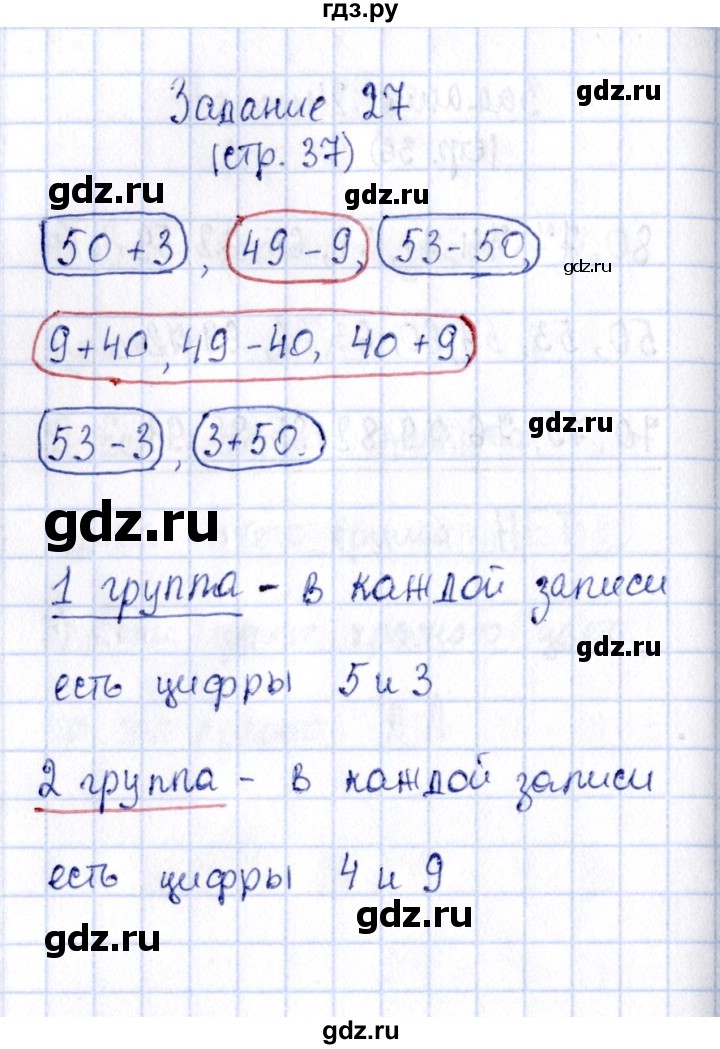 гдз.ру
Задание 27
gdz.ru
(стр. 37)
gdz.ru
gdz.ru
50+3, 49-9, 53-50,
gdz.ru
9+40, 49-40, 40+9,
53-3, 3+50.
gdz.ru
gdz.ru
1 группа - в каждой записи
gdz.ru
есть цифры 5 и 3
2 группа - в каждой записи
есть цифры 4 и 9
gdz.ru
gdz.ru
gdz.ru